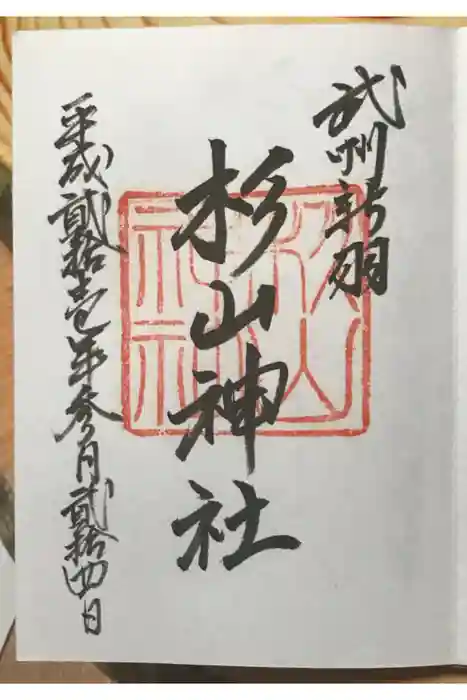 武州新羽
杉山神社
平成貳拾壱年参月貳拾四日
杉山神社